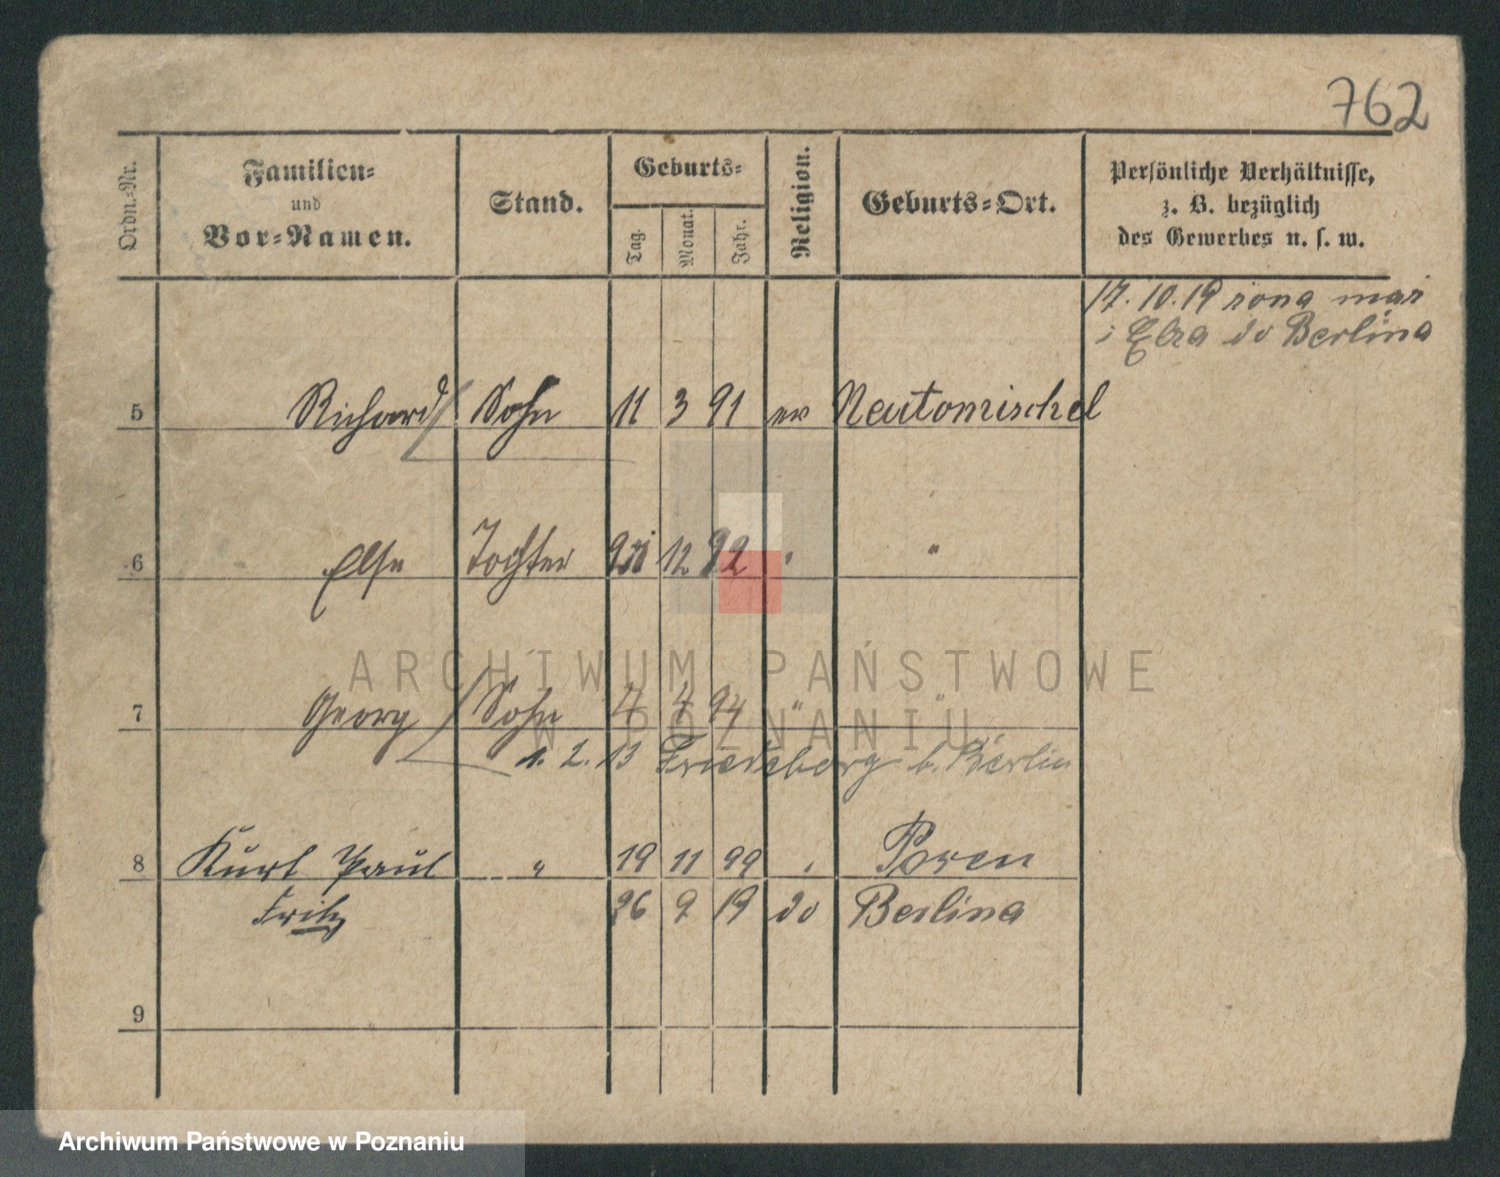 762
Ordn.-Nr.
Familien-
und
Vor-Namen.
Stand.
Geburts-
Tag.
Monat.
Jahr.
Religion.
Geburts-Ort.
Persönliche Verhältnisse,
z. B. bezüglich
des Gewerbes u. s. w.
17. 10. 19 żona
i Elza do Berlina
5 Richard Sohn 11 3 91 ev Neutomischel
6 Else Tochter 12 92 " "
ARCHIWUM PAŃSTWOWE
W POZNANIU
7 Georg Sohn 4 4 94 " "
1. 2. 13 b. Berlin
8 Kurt Paul " 19 11 99 " Posen
Fritz 26 9 19 do Berlina
9
Archiwum Państwowe w Poznaniu